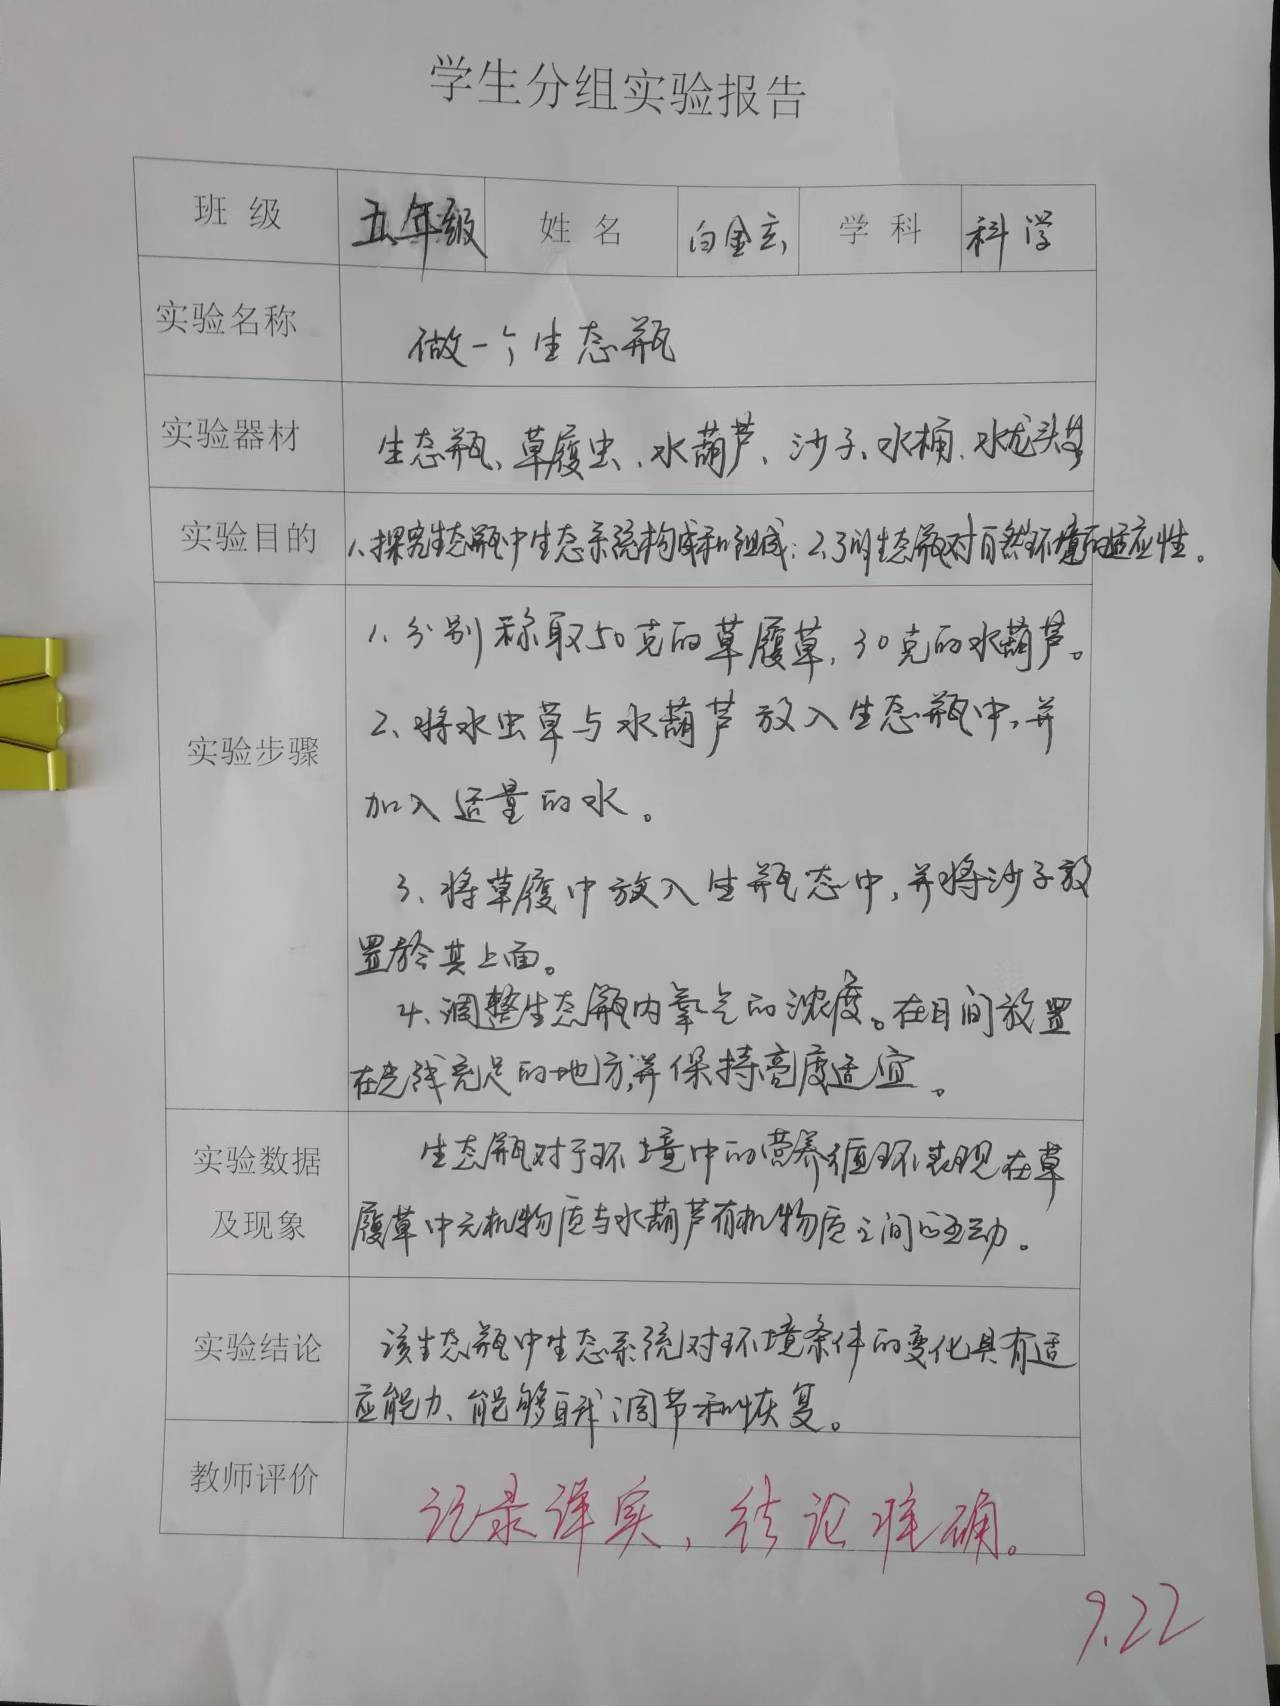 学生分组实验报告
班级 五年级 姓名 白金玄 学科 科学
实验名称 做一个生态瓶
实验器材 生态瓶、草履虫、水葫芦、沙子、水桶、水龙头等
实验目的 1、探究生态瓶中生态系统构成和组成；2、了解生态瓶对自然环境的适应性。
实验步骤
1、分别称取50克的草履草，30克的水葫芦。
2、将水虫草与水葫芦放入生态瓶中，并
加入适量的水。
3、将草履中放入生瓶态中，并将沙子放
置於其上面。
4、调整生态瓶内氧气的浓度。在日间放置
在光线充足的地方，并保持亮度适宜。
实验数据 生态瓶对于环境中的营养循环表现在草
及现象 履草中无机物质与水葫芦有机物质之间的互动。
实验结论 该生态瓶中生态系统对环境条件的变化具有适
应能力、能够自我调节和恢复。
教师评价 记录详实，结论准确。
9.22